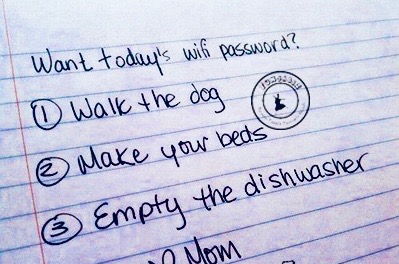 Want today's wifi password?
1 Walk the dog
2 Make your beds
3 Empty the dishwasher
Mom